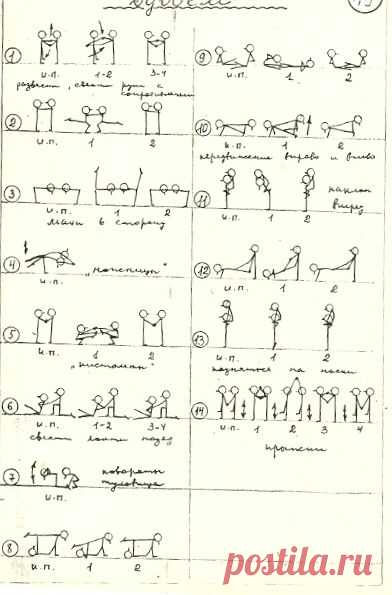 1
и.п. 1-2 3-4
развести, свести руки с
сопротивлением
2
и.п. 1 2
3
и.п. 1 2
махи в сторону
4
"ножницы"
и.п.
5
и.п. 1 2
6
и.п. 1-2 3-4
свести локти назад
7
повороты
туловища
и.п.
8
и.п. 1 2
9
и.п. 1 2
10
и.п. 1 2
передвижение вправо и влево
11
наклон
вперед
и.п. 1 2
12
и.п. 1 2
13
и.п. 1 2
подняться на носки
14
и.п. 1 2 3 4
прыжки
postila.ru